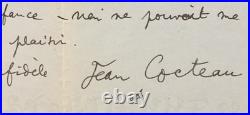 fance – rien ne pouvait me
plaisir.
fidèle Jean Cocteau